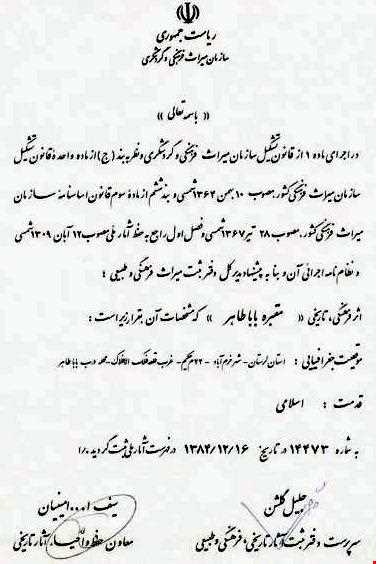 ریاست جمهوری
سازمان میراث فرهنگی و گردشگری
« باسمه تعالی »
در اجرای ماده ۱ از قانون تشکیل سازمان میراث فرهنگی و گردشگری و نظر به بند (ج) از ماده واحدهٔ قانون تشکیل
سازمان میراث فرهنگی کشور مصوب ۱۰ بهمن ۱۳۶۴ شمسی و بند ششم از مادهٔ سوم قانون اساسنامه سازمان
میراث فرهنگی کشور مصوب ۲۸ تیر ۱۳۶۷ شمسی و فصل اول راجع به حفظ آثار ملی مصوب ۱۲ آبان ۱۳۰۹ شمسی
و نظام نامه اجرائی آن و بنا به پیشنهاد مدیر کل دفتر ثبت میراث فرهنگی و طبیعی :
اثر فرهنگی، تاریخی « مقبره بابا طاهر » که مشخصات آن بقرار زیر است :
موقعیت جغرافیایی : استان لرستان - شهر خرم آباد - ۲۲ - غرب قلعه فلک الافلاک - محله درب باباطاهر
قدمت : اسلامی
به شماره ۱۴۴۷۳ در تاریخ ۱۳۸۴/۱۲/۱۶ در فهرست آثار ملی ثبت گردید
جلیل گلشن
سرپرست دفتر ثبت آثار تاریخی، فرهنگی و طبیعی
سیف ا... امینیان
معاون حفظ و احیاء آثار تاریخی